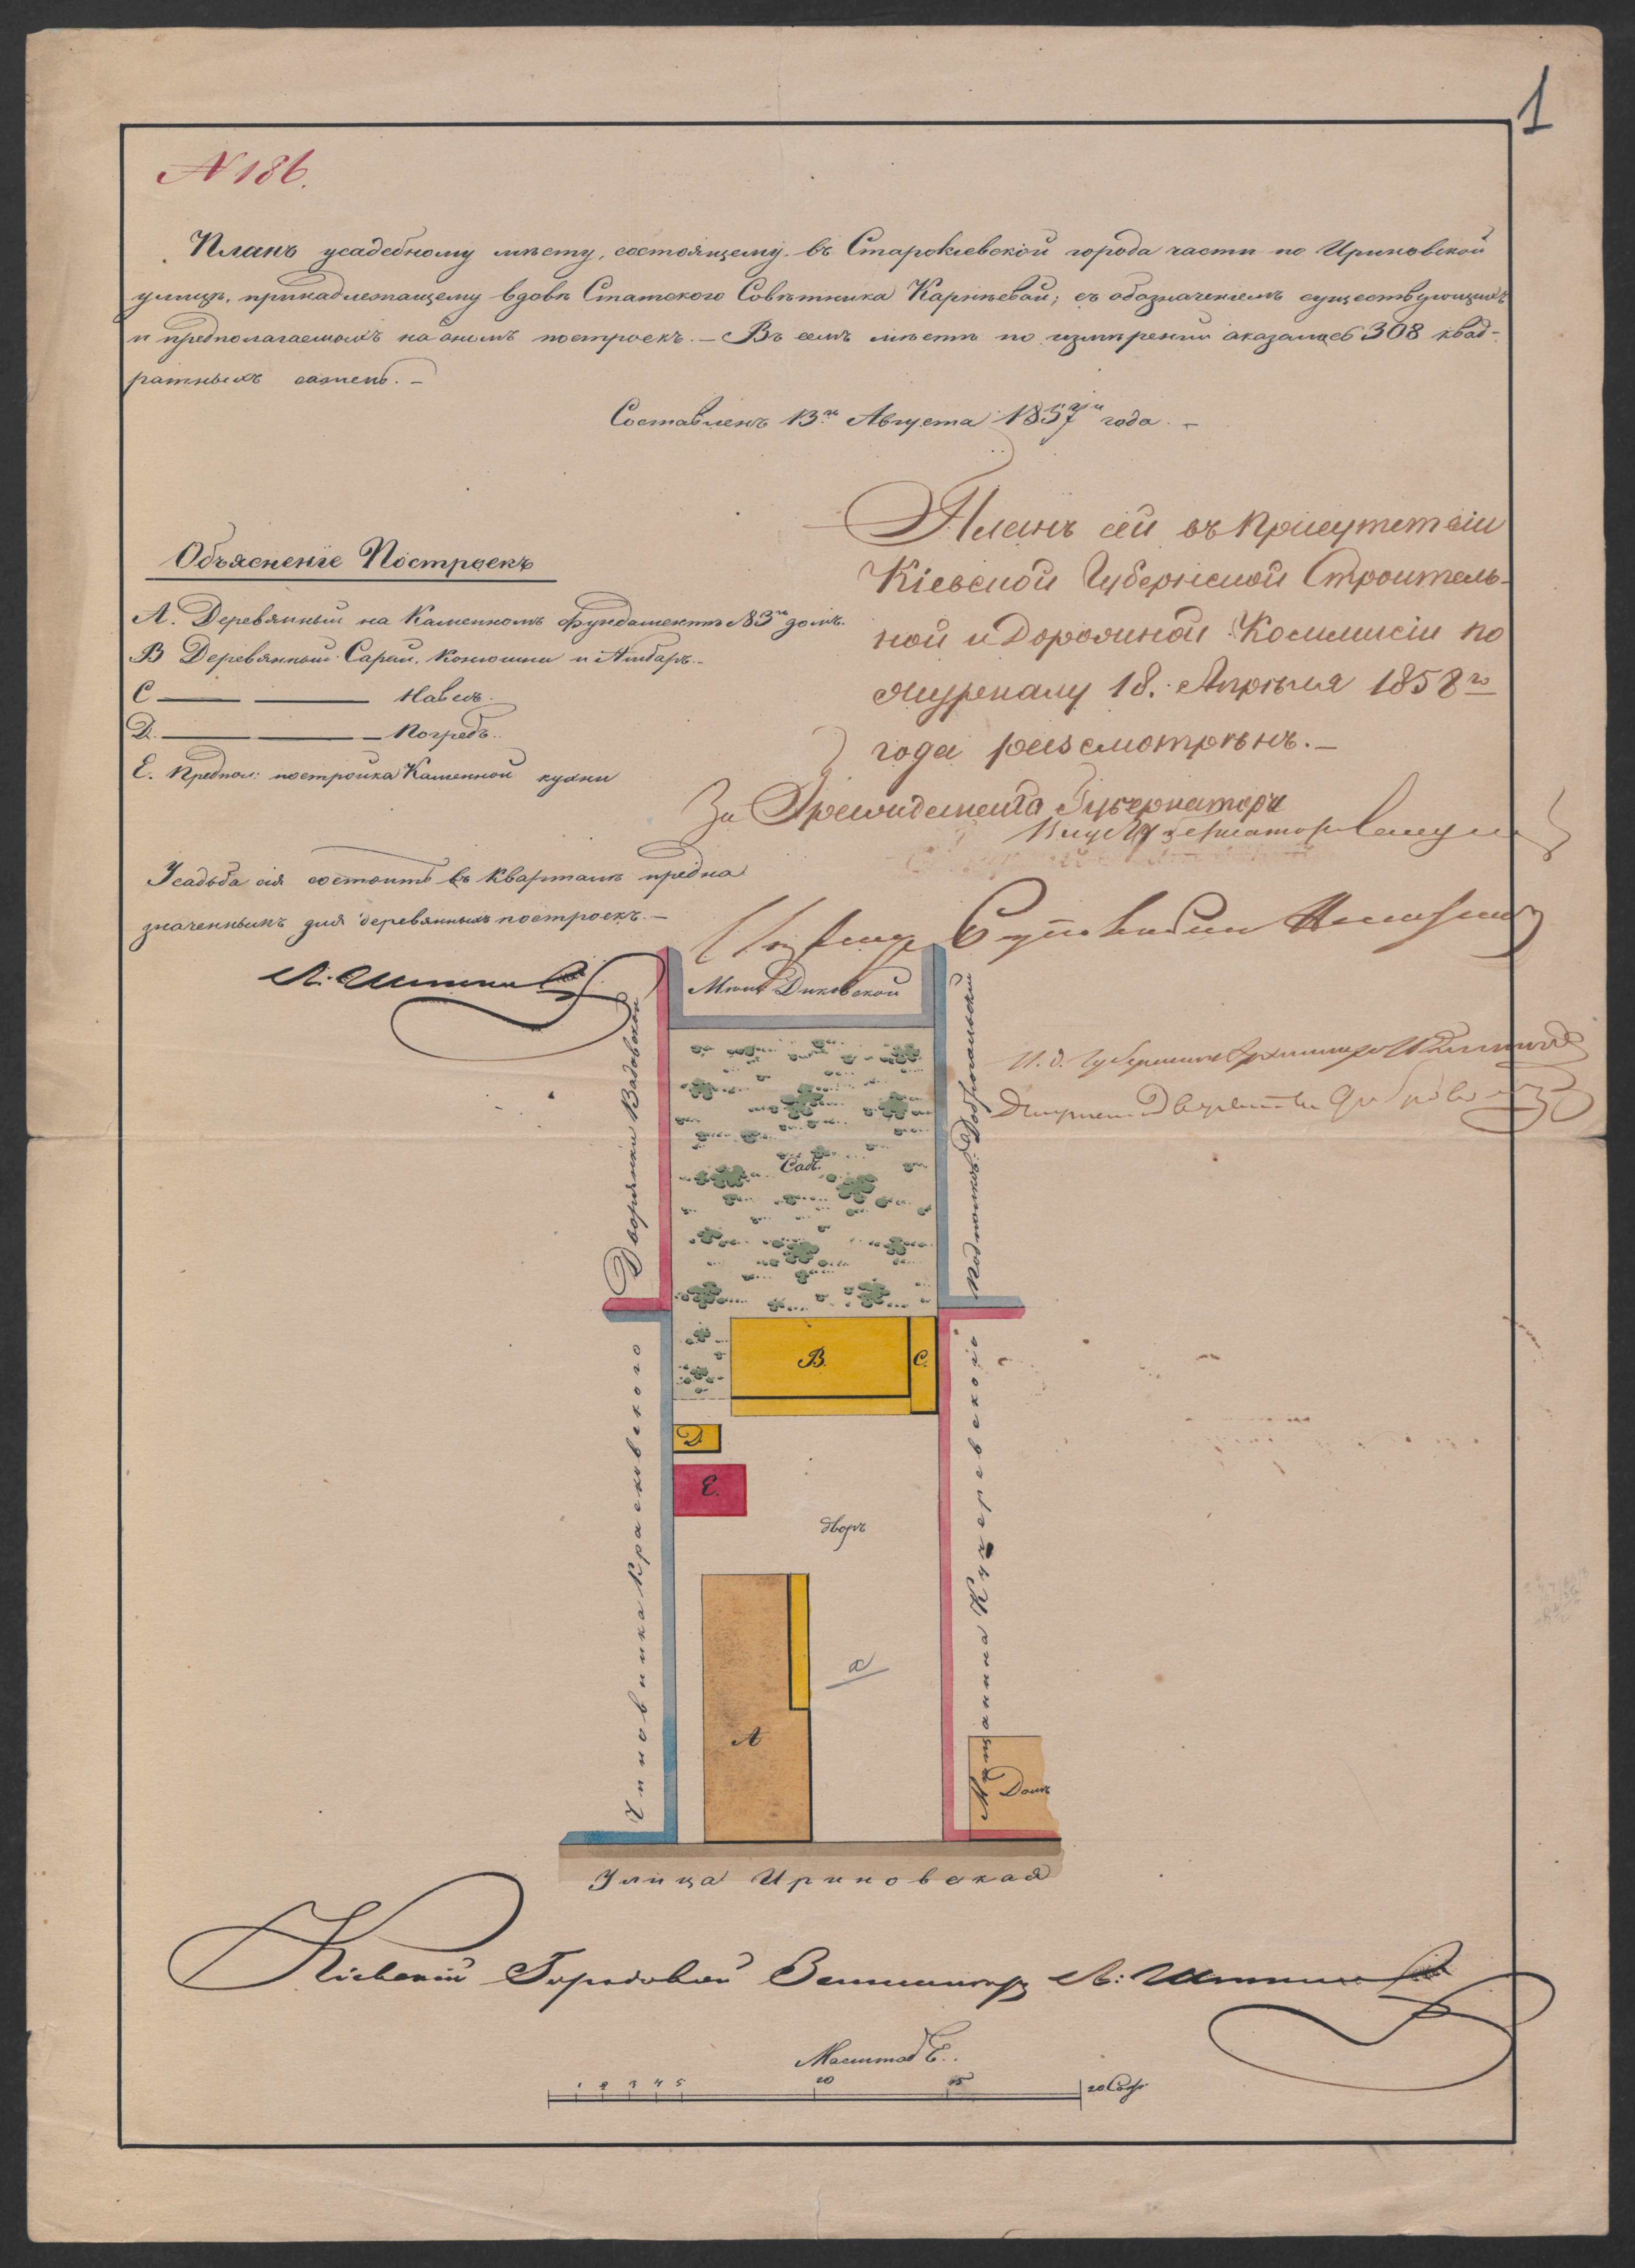 1
N 186.
Планъ усадебному мѣсту, состоящему въ Старокіевской города части по Ириновской
улицѣ, принадлежащему вдовѣ Статского Совѣтника Карнѣевой; съ обозначеніемъ существующихъ
и предполагаемыхъ на ономъ построекъ. — Въ семъ мѣстѣ по измѣреніи оказалось 308 квад-
ратныхъ сажень. —
Составленъ 13го Августа 1857 года. —
Планъ сей въ присутствіи
Кіевской Губернской Строитель-
ной и Дорожной Коммисіи по
журналу 18. Апрѣля 1858го
года разсмотрѣнъ. —
За Президента Губернатора
Вице Губернаторъ
Объясненіе Построекъ
А. Деревянный на Каменномъ фундаментѣ домъ.
В Деревянный Сарай, Конюшни и Амбаръ. —
С — — Навесъ.
D. — — Погребъ.
Е. Предпол: постройка Каменной кухни
Усадьба сія состоитъ въ кварталѣ предна
значенныхъ для деревянныхъ построекъ. —
И. д. Губернскаго Архитектора
Мѣсто Диковской
Дворянки
Подполков:
Садъ.
В.
С.
D
Е.
дворъ
Чиновника Красковского
Мѣщанина
а
А
Домъ
Улица Ириновская
Кіевскій Городовой Землемѣръ
Масштабъ.
1 2 3 4 5 10 15 20 Саж